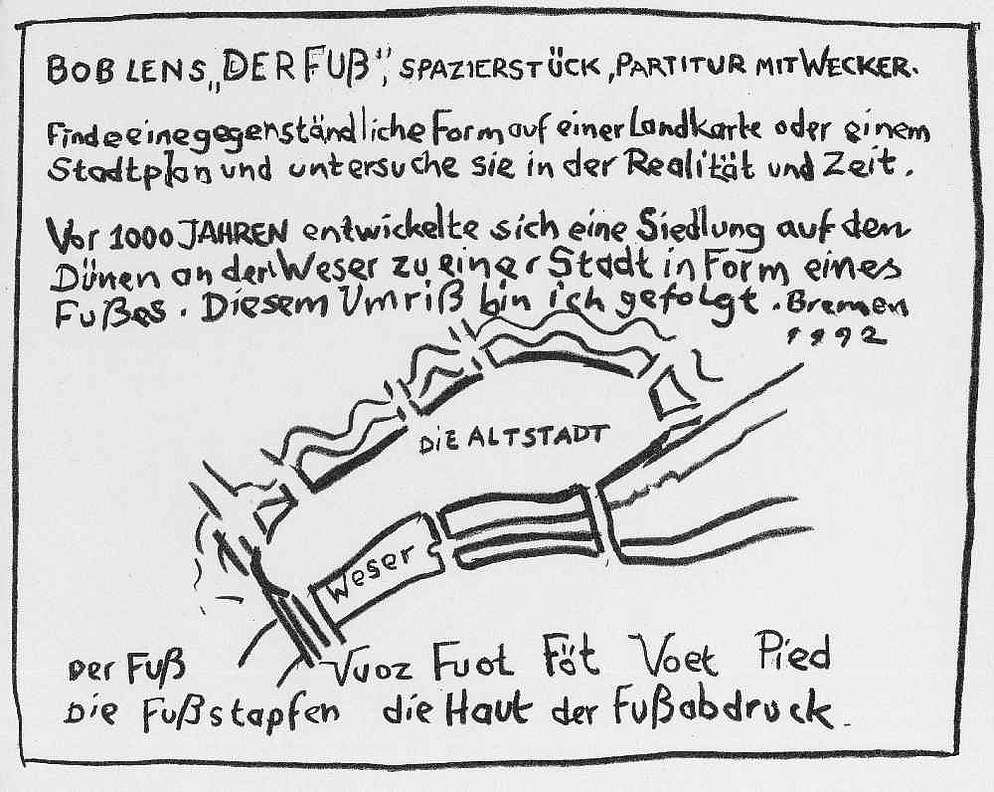 BOB LENS „DER FUß", SPAZIERSTÜCK, PARTITUR MIT WECKER.
Finde eine gegenständliche Form auf einer Landkarte oder einem
Stadtplan und untersuche sie in der Realität und Zeit.
Vor 1000 JAHREN entwickelte sich eine Siedlung auf den
Dünen an der Weser zu einer Stadt in Form eines
Fußes. Diesem Umriß bin ich gefolgt. Bremen
1992
DiE ALTSTADT
Weser
Der Fuß Vuoz Fuot Föt Voet Pied
Die Fußstapfen die Haut der Fußabdruck.